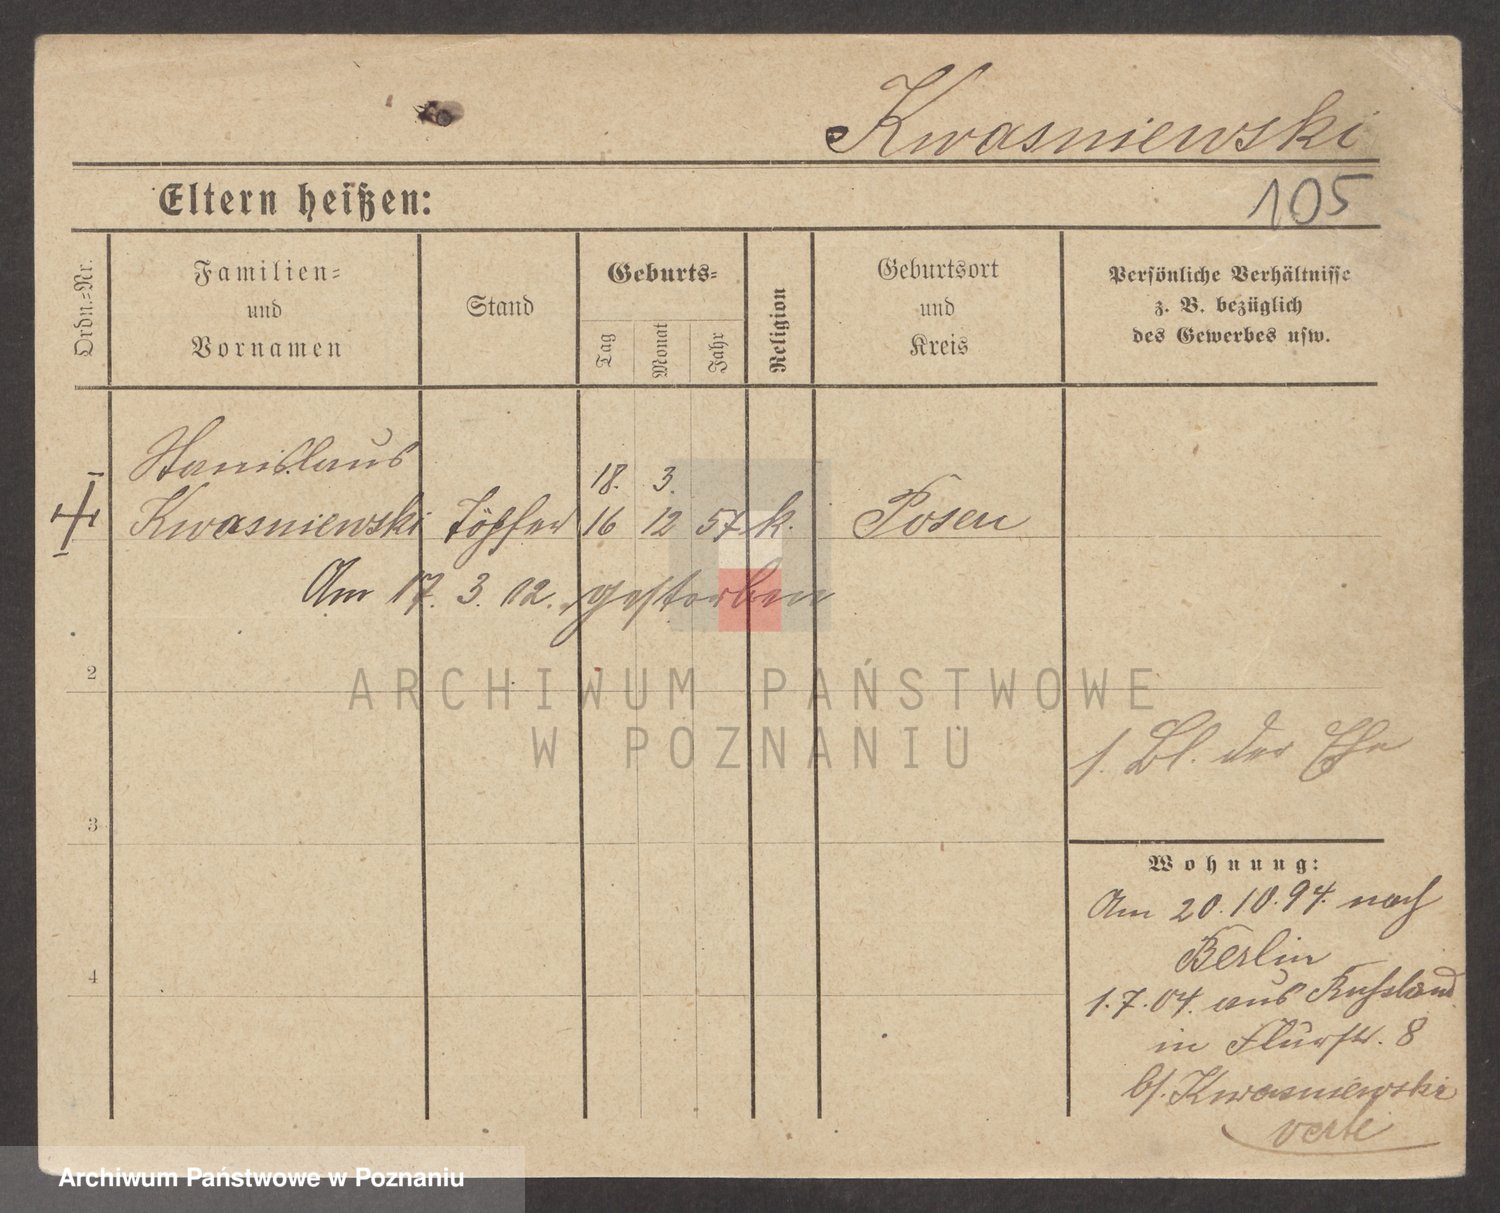 Kwasniewski
Eltern heißen:
105
Ordn.=Nr.
Familien=
und
Vornamen
Stand
Geburts=
Tag
Monat
Jahr
Religion
Geburtsort
und
Kreis
Persönliche Verhältnisse
z. B. bezüglich
des Gewerbes usw.
Stanislaus
18. 3.
Kwasniewski Töpfer 16 12 57 k. Posen
Am 17. 3. 12. gestorben
2
ARCHIWUM PAŃSTWOWE
W POZNANIU
s. Bl. der Ehe
3
Wohnung:
Am 20.10.94. nach
Berlin
4
1.7.04. aus Russland
in Flurstr. 8
b/. Kwasniewski
verte
Archiwum Państwowe w Poznaniu